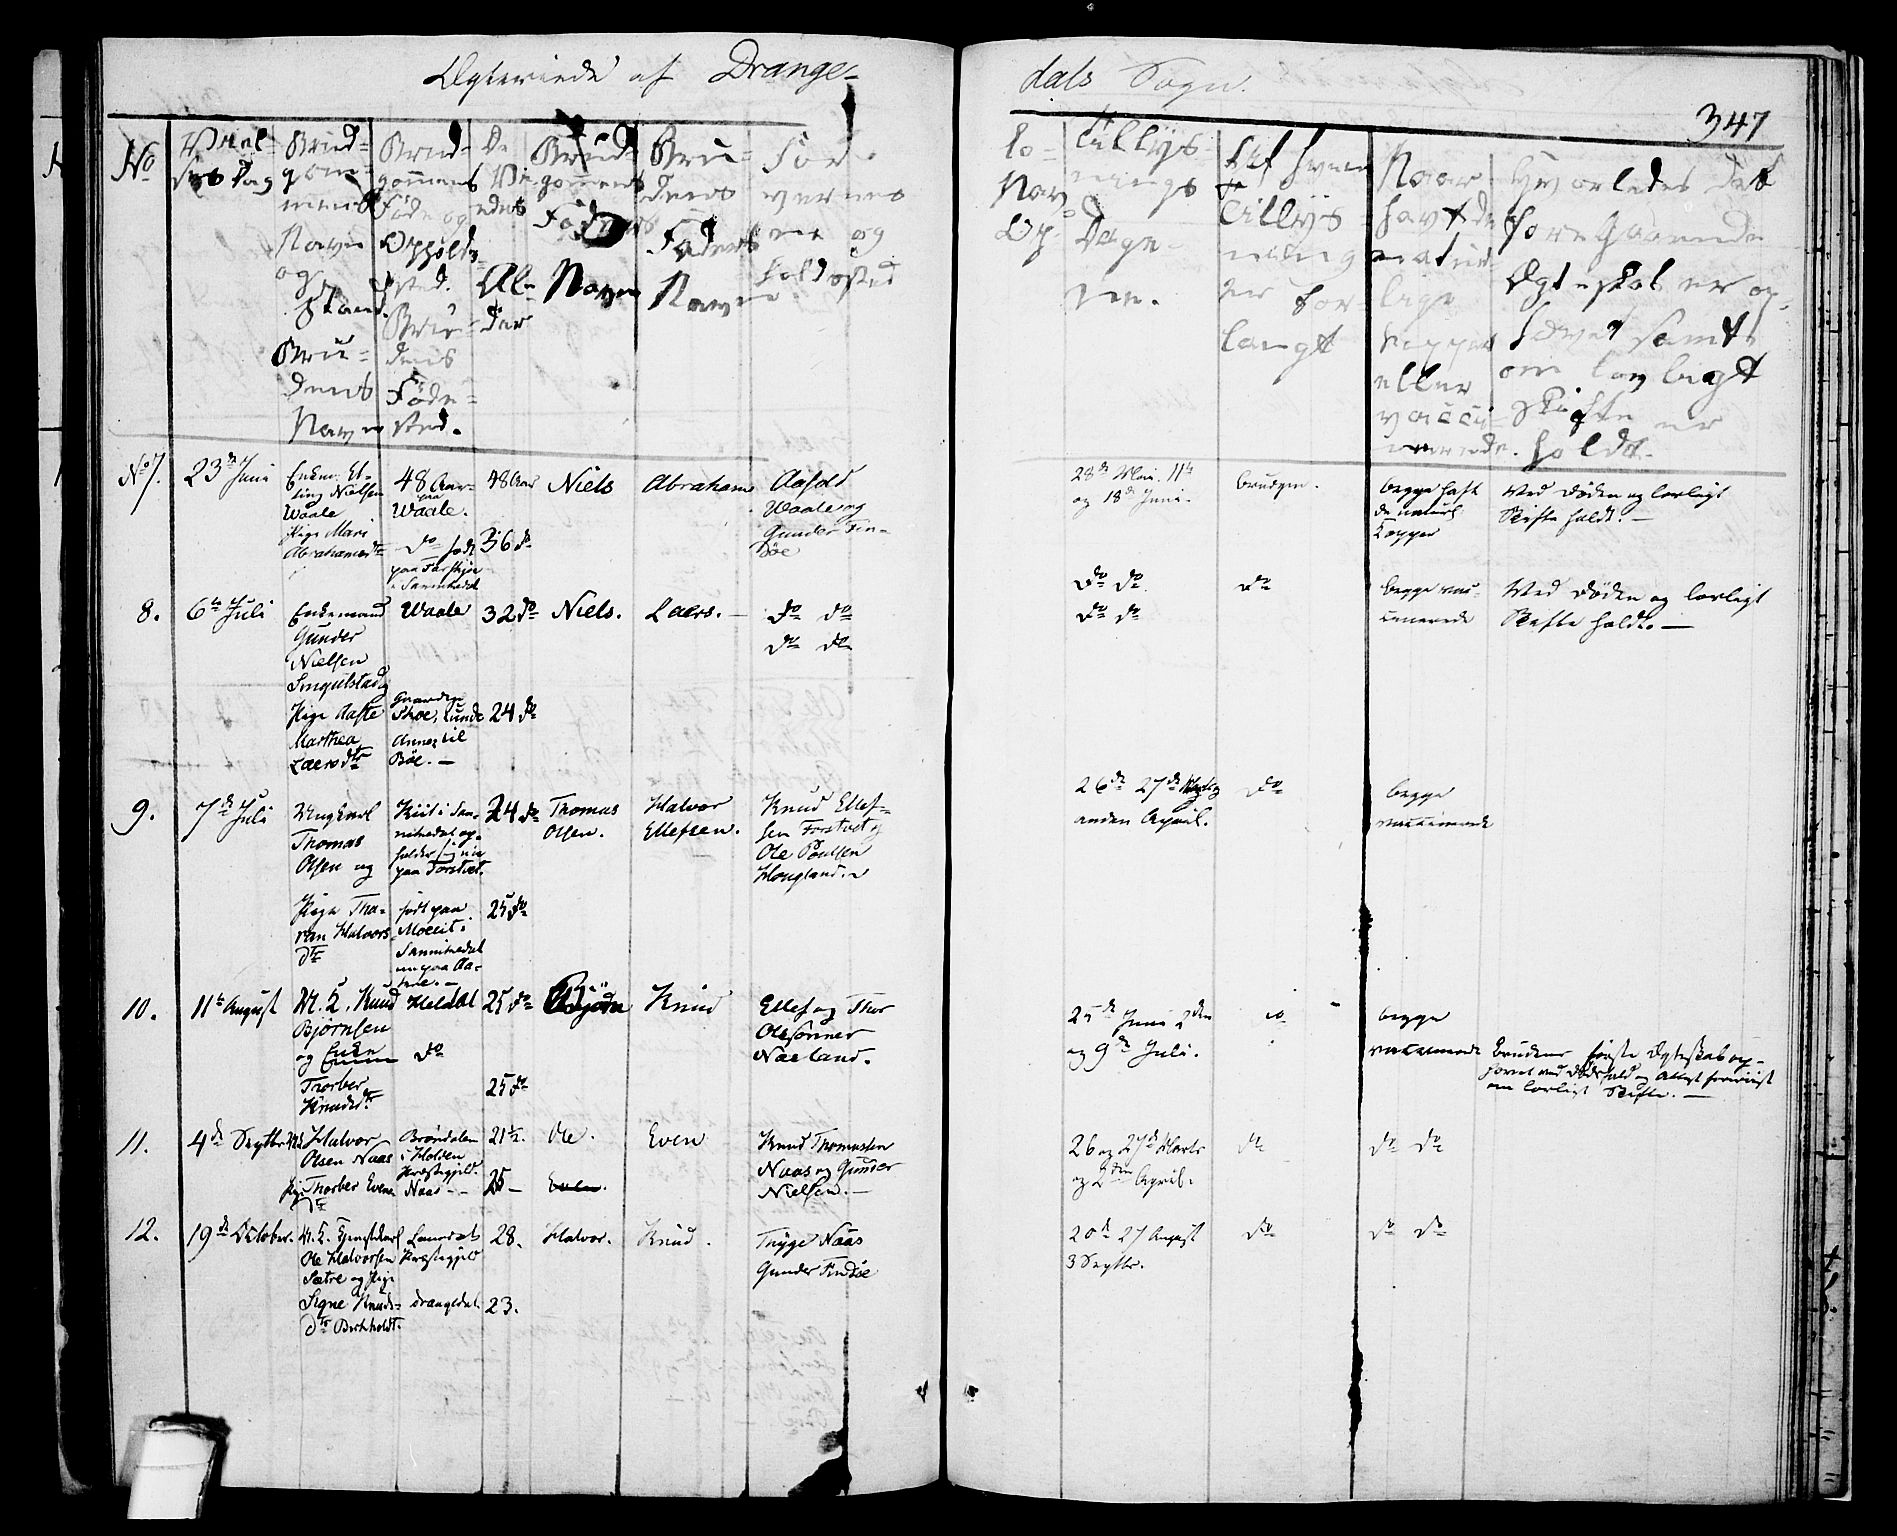 Ægteviede af Drange-
dals Sogn.
347
No
Viel-
ses Dag
Brud-
gom-
mens
Navn
og
Stand.
Bru-
dens
Navn
Brud-
gommens
Føde og
Opholds
sted.
Bru-
dens
Føde-
sted.
De
Vi-
edes
Al-
der
Brud-
gomens
Faders
Navn
Bru-
dens
Faders
Navn
For-
vernes
og
holdssted
Lo-
Nav
Op.
Tillys-
nings
Dage-
ne.
Af hvem
Tillys
ning
er for
langt
Naar
havt de
natur-
lige
kopper
eller
vacci-
nerede.
Hvorledes det
foregaaende
Ægteskab er op-
hævet samt
om lovligt
Skifte er
holdt.
No 7.
23de Juni
Enkem: El-
ling Nielsen
Waale
Pige Mari
Abrahamsdtr
48 Aar
paa
Waale.
do født
paa
i Sannikedal
48 Aar
36 do
Niels
Abraham
Aasold
Waale og
Gunder Fin-
døe
28de Mai. 11te
og 18de Juni.
brudgom.
begge haft
de naturl
Kopper
Ved Døden og lovligt
Skifte holdt. —
8.
6te Juli
Enkemand
Gunder
Nielsen
Pige Aaste
Marthea
Laersdtr
Waale
Skoe, Lunde
Annex til
Bøe. —
32 do
24 do
Niels.
Laers. —
do do
do do
do do
do do
do
begge vac-
cinerede
Ved Døden og lovligt
Skifte holdt. —
9.
7de Juli
Ungkarl
Thomas
Olsen og
Pige Tho-
ran Halvors
dtr
i San-
nikedal op-
holder sig nu
paa Torstvet.
født paa
i
Sannikedal
nu paa
24 do
25 do
Thomas
Olsen.
Halvor
Ellefsen.
Knud Ellef-
sen Torstvet og
Ole Poulsen
Hougland.
26de 27de og
anden April.
do
begge
vaccinerede
10.
11te August
U. K. Knud
Bjørnsen
og Enke
Thorber
Knudsdtr
Heldal
do
25 do
25 do
Bjørn
Knud
Ellef og Thor
Olesønner
Næeland.
25de Juni 2den
og 9de Juli.
do
begge
vaccinerede
Brudens første Ægteskab op-
hævet ved Dødsfald og Attest foreviist
om lovligt Skifte. —
11.
4de Septbr
Halvor
Olsen Naas
Pige Thorber Evens
dtr
Brøndalen
i Holden
Præstegjeld.
Naas —
21½.
25 —
Ole.
Even
Knud Thomassen
Naas og Gunder
Nielsen. —
26 og 27de Marts
og 2den April.
do
do do
12.
19de October.
U. K.
Ole Halvorsen
Sætre og Pige
Signe Knuds-
dtr Berhholdt.
Præstegjeld
drangedal
28.
23.
Halvor.
Knud.
Trige Naas
Gunder Findøe
20de 27 August
3 Septbr.
do
do do